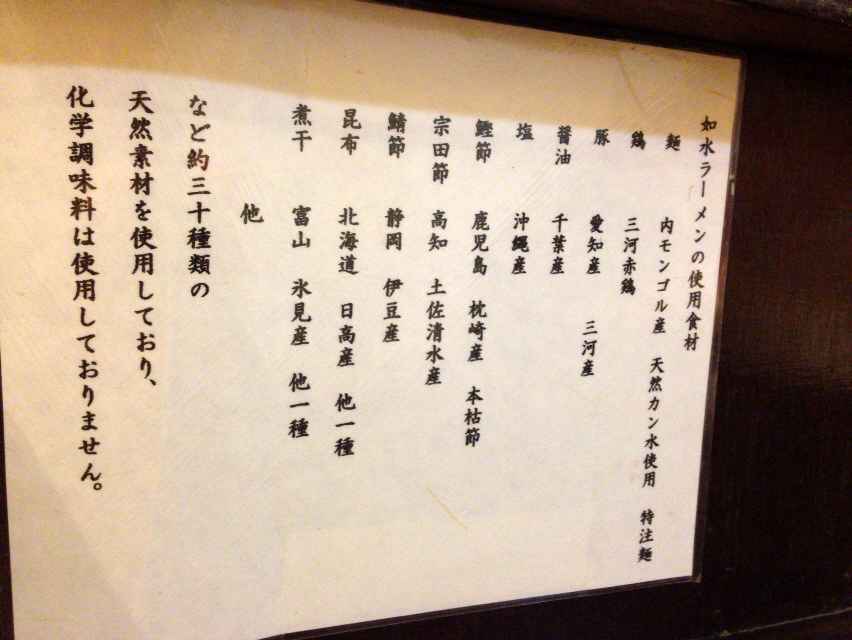 如水ラーメンの使用食材
麺 内モンゴル産 天然カン水使用 特注麺
鶏 三河赤鶏
豚 愛知産 三河産
醤油 千葉産
塩 沖縄産
鰹節 鹿児島 枕崎産 本枯節
宗田節 高知 土佐清水産
鯖節 静岡 伊豆産
昆布 北海道 日高産 他一種
煮干 富山 氷見産 他一種
他
など約三十種類の
天然素材を使用しており、
化学調味料は使用しておりません。